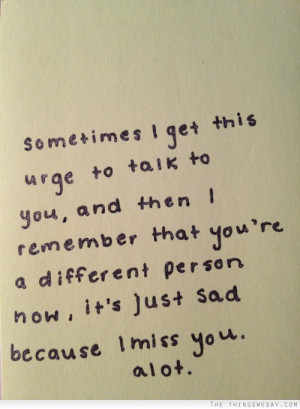 sometimes I get this
urge to talk to
you, and then I
remember that you're
a different person
now, it's just sad
because I miss you.
alot.
THETHINGSWESAY.COM